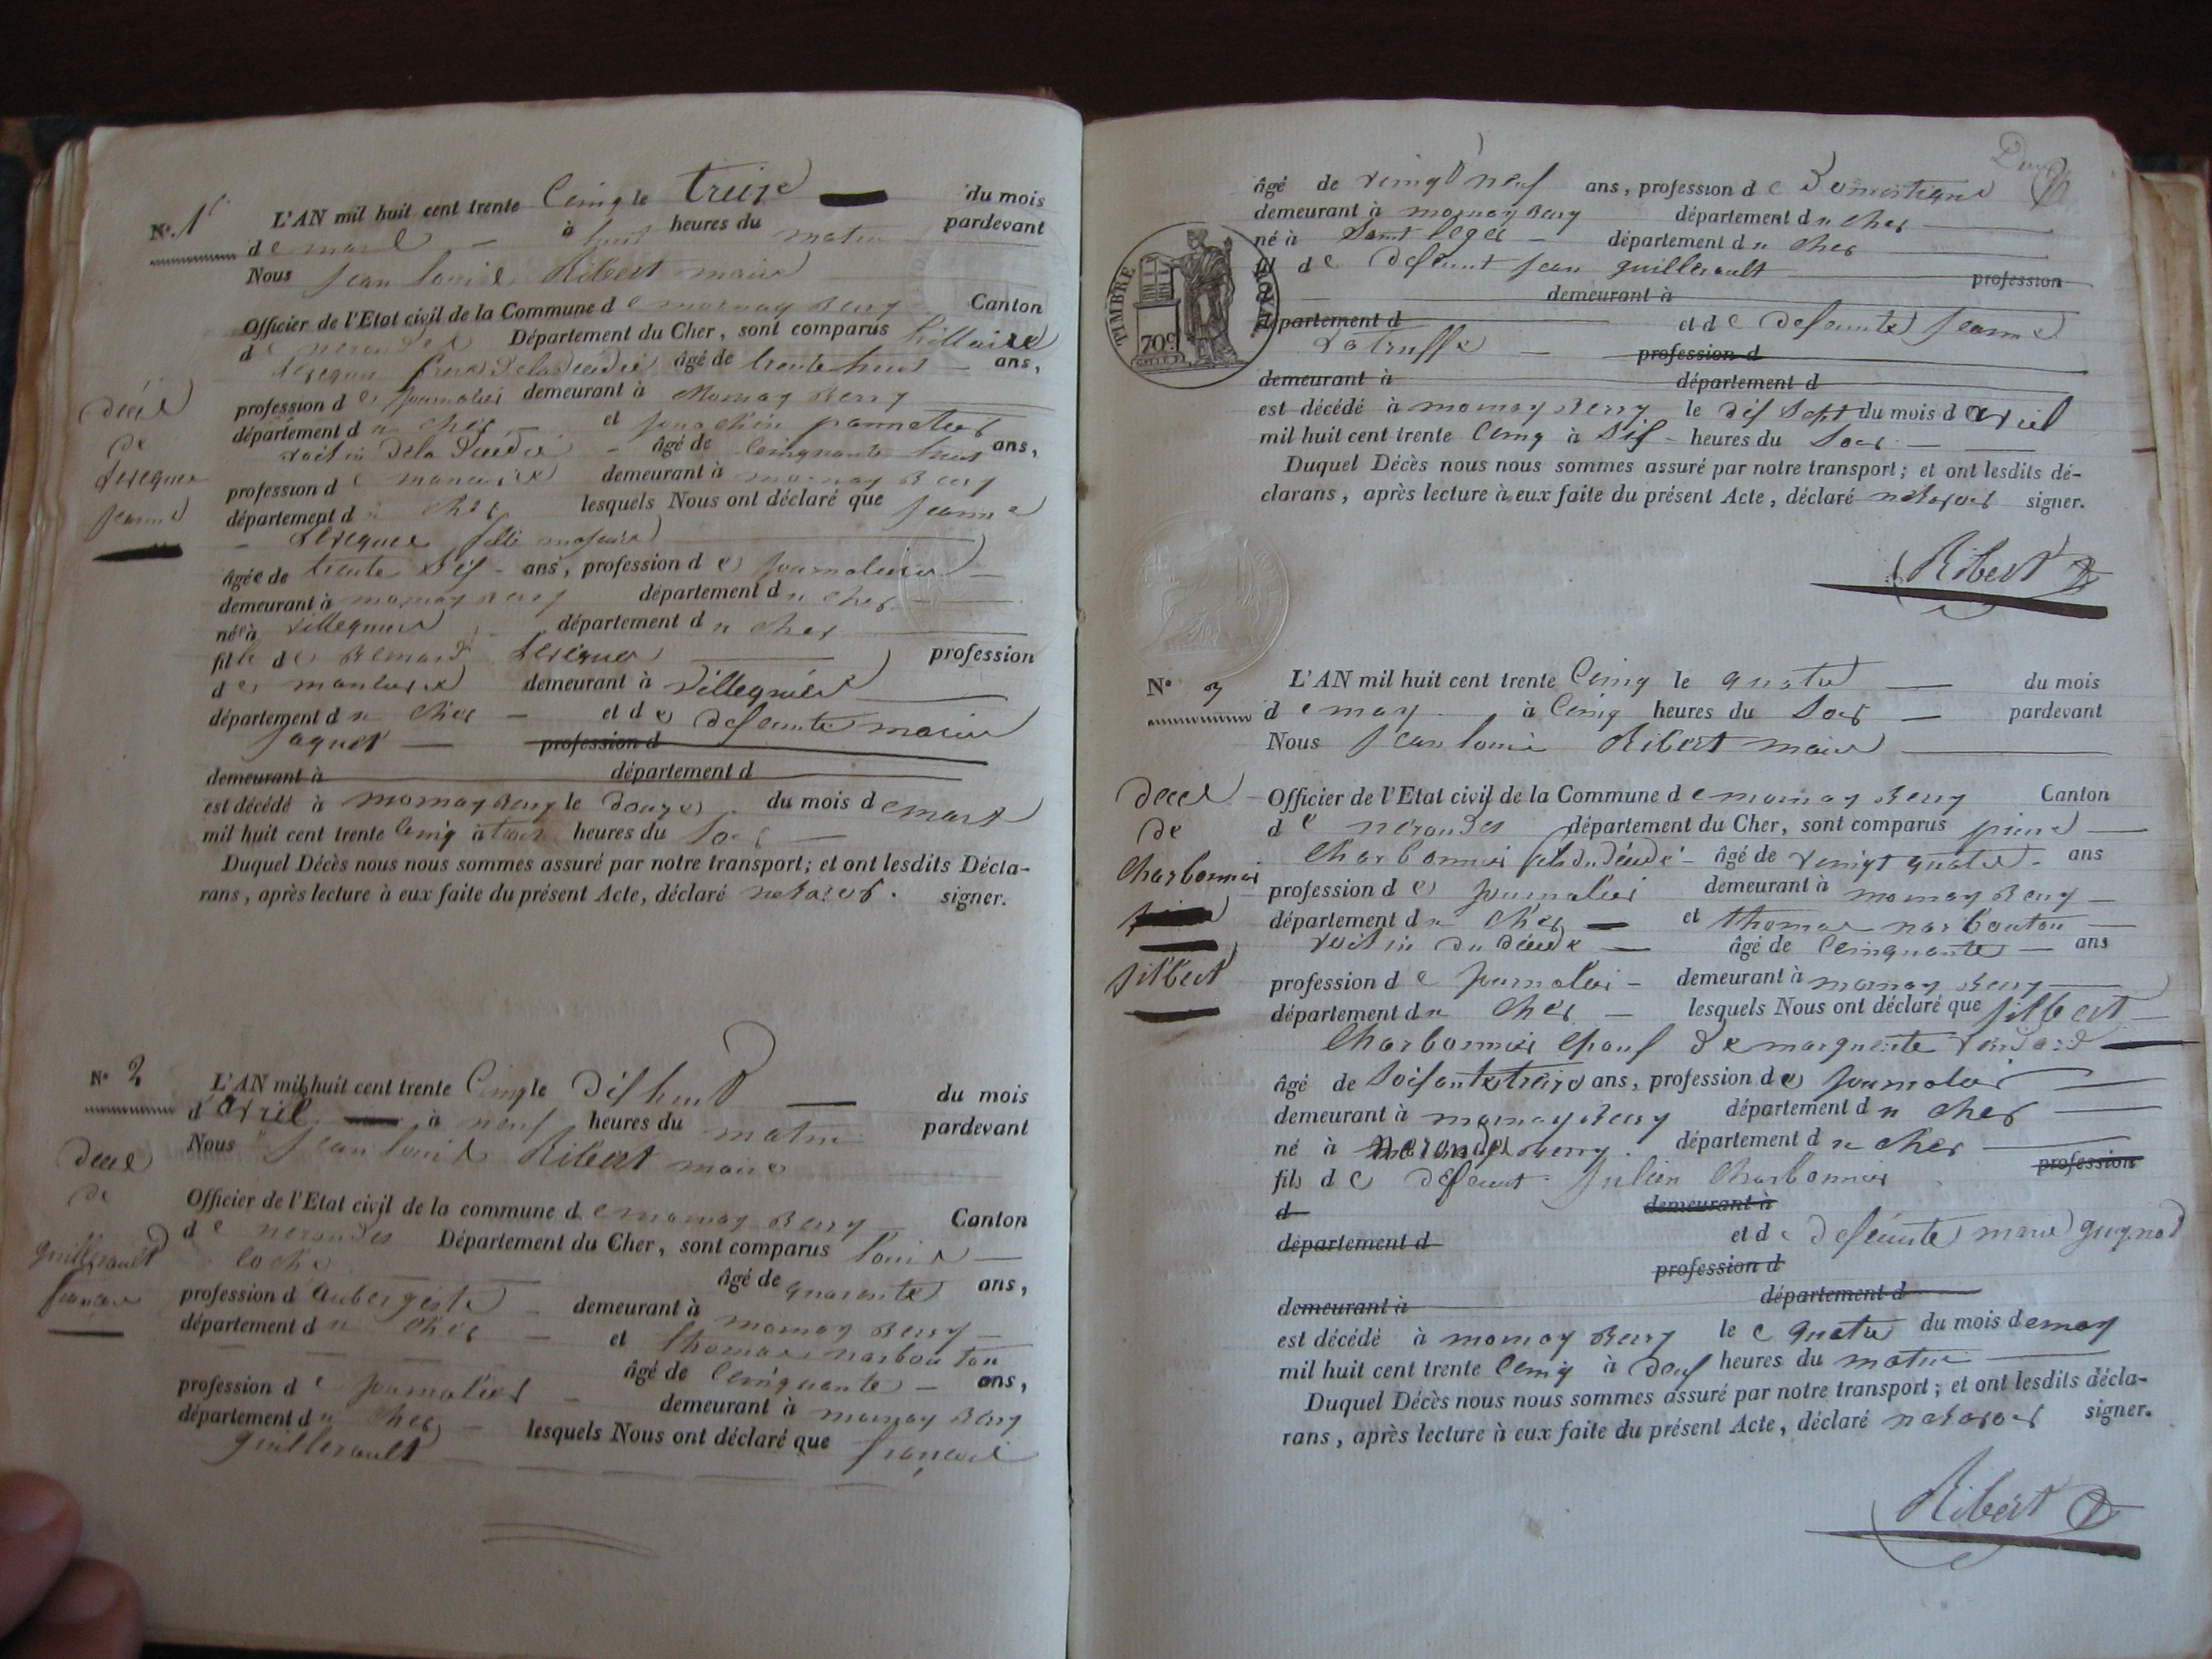 N.° 1.er
L'AN mil huit cent trente Cinq le treize du mois
de mars à huit heures du matin pardevant
Nous Jean louis Ribert maire
Officier de l'Etat civil de la Commune de mornay Berry Canton
de nerondes Département du Cher, sont comparus hillaire
levequé frere de la décédée âgé de trente huit ans,
profession de journalier demeurant à Mornay Berry
département du cher et
voisin de la décédée âgé de Cinquante huit ans,
profession de manœuvre demeurant à mornay Berry
département du cher lesquels Nous ont déclaré que jeanne
levequé fille majeure
âgée de trente six ans, profession de journaliere
demeurant à mornay Berry département du cher
née à villequiers département du cher
fille de Bernard levequé profession
de manœuvre demeurant à villequiers
département du cher et de defeunte marie
jaquet profession d
demeurant à département d
est décédé à mornay Berry le douze du mois de mars
mil huit cent trente Cinq à trois heures du soir
Duquel Décès nous nous sommes assuré par notre transport; et ont lesdits Décla-
rans, après lecture à eux faite du présent Acte, déclaré ne savoir signer.
décès
de
levequé
jeanne
N° 2
L'AN mil huit cent trente Cinq le dis huit du mois
d'avril à neuf heures du matin pardevant
Nous Jean louis Ribert maire
Officier de l'Etat civil de la commune de mornay Berry Canton
de nerondes Département du Cher, sont comparus louis
loché âgé de quarante ans,
profession d aubergiste demeurant à mornay Berry
département du cher et thomas narbouton
âgé de Cinquante ans,
profession de journalier demeurant à mornay Berry
département du cher lesquels Nous ont déclaré que françois
guillerault
décès
de
guillerault
françois
Deux
âgé de vingt neuf ans, profession de Domestique
demeurant à mornay Berry département du cher
né à Saint leger département du cher
fil de defeunt jean guillerault profession
demeurant à
département d et de defeunte jeanne
latruffe profession d
demeurant à département d
est décédé à mornay Berry le dis sept du mois d avril
mil huit cent trente Cinq à sis heures du soir
Duquel Décès nous nous sommes assuré par notre transport; et ont lesdits dé-
clarans, après lecture à eux faite du présent Acte, déclaré ne savoir signer.
Ribert
TIMBRE ROYAL
70c
N° 3
L'AN mil huit cent trente Cinq le quatre du mois
de may à Cinq heures du soir pardevant
Nous Jean louis Ribert maire
Officier de l'Etat civil de la Commune de mornay Berry Canton
de nerondes département du Cher, sont comparus pierre
Charbonnier fils du décédé âgé de vingt quatre ans
profession de journalier demeurant à mornay Berry
département du cher et thomas narbouton
voisin du décédé âgé de Cinquante ans
profession de journalier demeurant à mornay Berry
département du cher lesquels Nous ont déclaré que jilbert
Charbonnier epouf de marguerite
âgé de soisante treize ans, profession de journalier
demeurant à mornay Berry département du cher
né à département du cher
fils de defeunt julien Charbonnier profession
d demeurant à
département d et de defeunte marie guignod
profession d
demeurant à département d
est décédé à mornay Berry le quatre du mois de may
mil huit cent trente Cinq à heures du matin
Duquel Décès nous nous sommes assuré par notre transport; et ont lesdits décla-
rans, après lecture à eux faite du présent Acte, déclaré ne savoir signer.
Ribert
décès
de
Charbonnier
jilbert